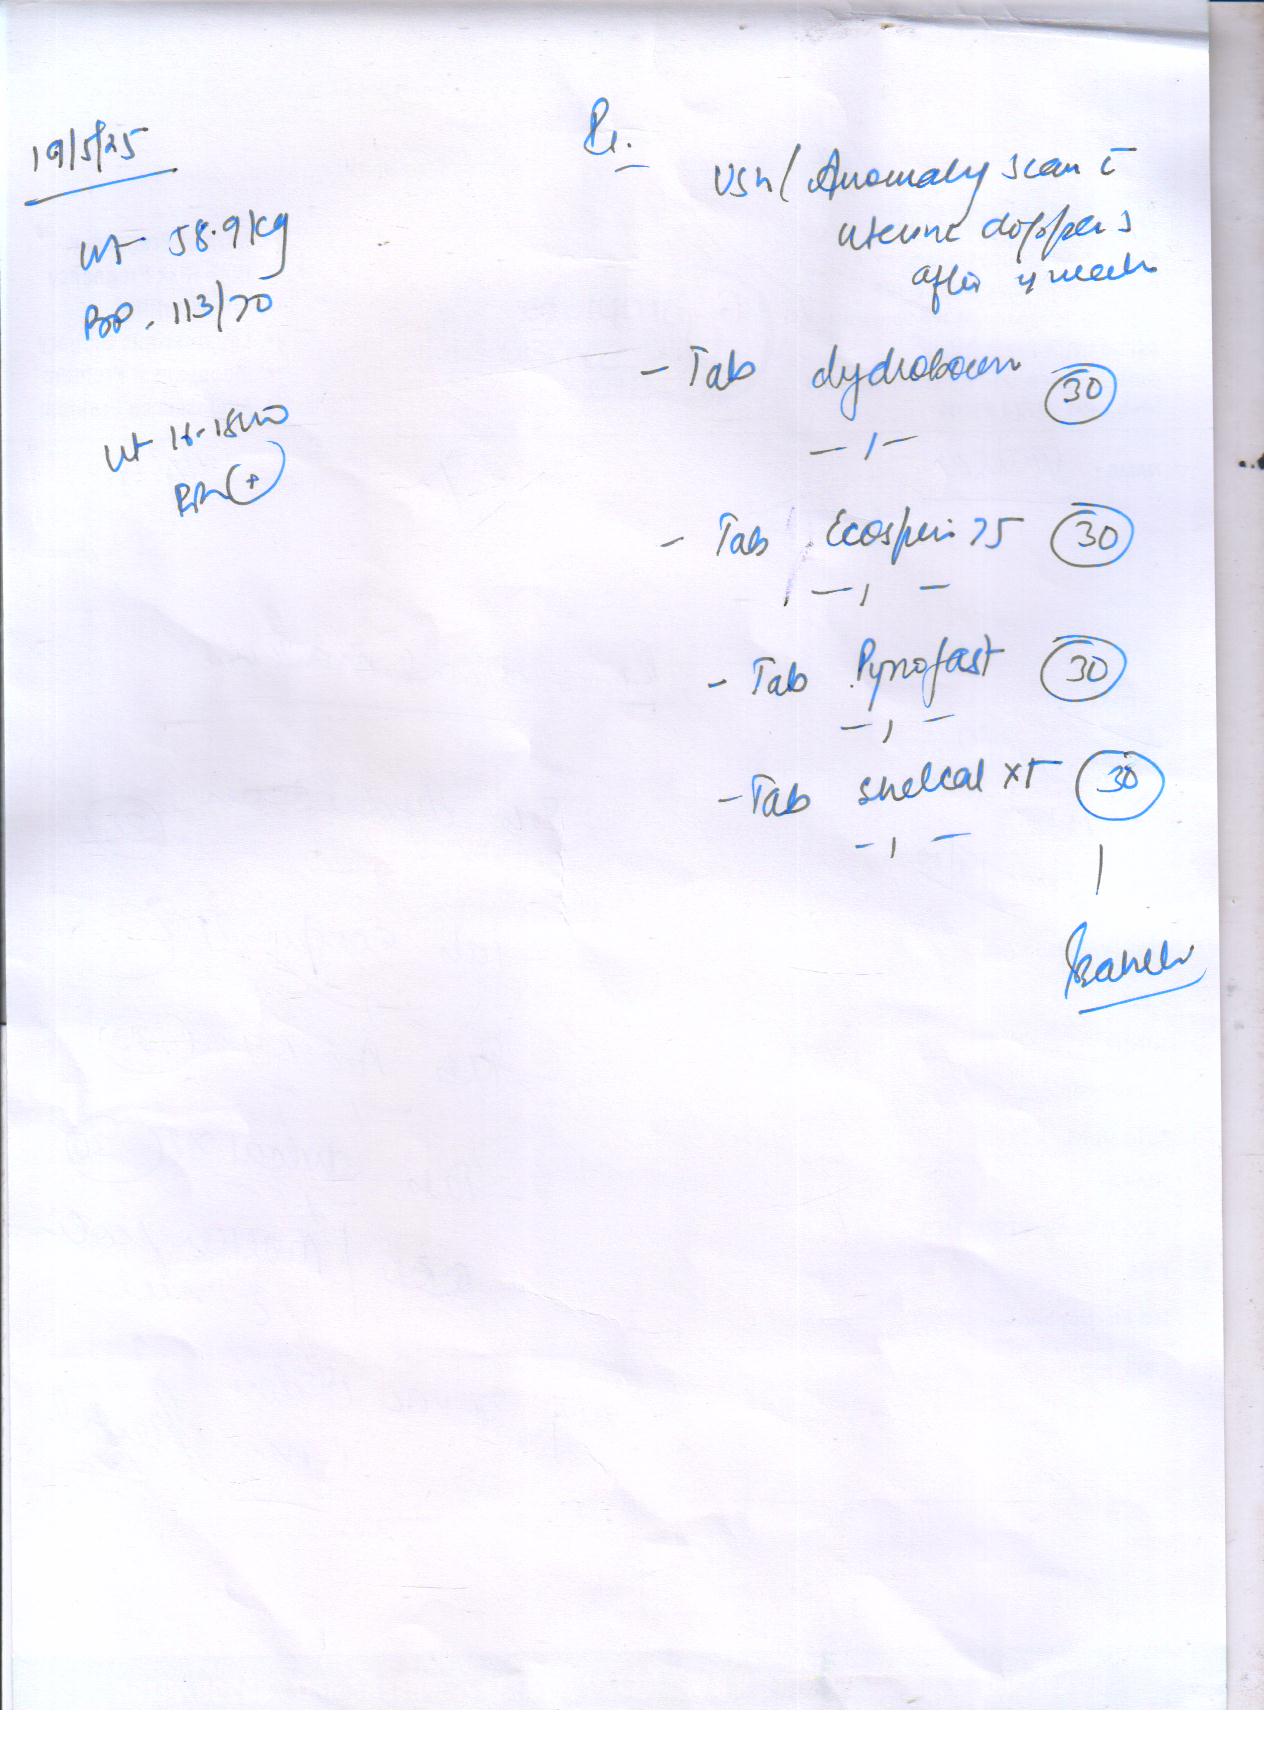 19/5/25
Wt 58.9 kg
BP. 113/70
Ut 16-18
(+)
Rx.
USG / Anomaly scan c̄
uterine dopplers
after 4 weeks
- Tab dydroboon 30
- Tab Ecosprin 75 30
- Tab Pynofast 30
- Tab shelcal XT 30